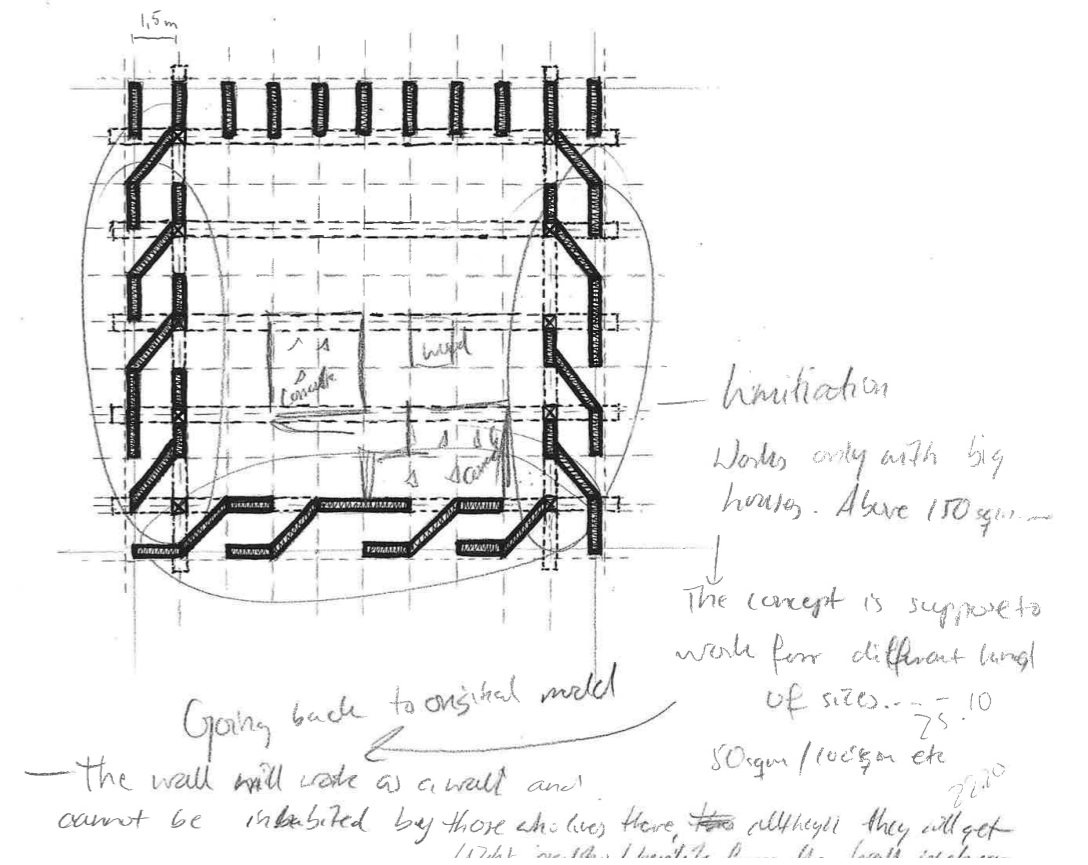 1,5m
wood
Concrete
Limitiation
Works only with big
houses. Above 150 sqm
The concept is suppose to
work for different kind
of sizes.... - 10
25
50sqm / 100sqm etc
Going back to original model
22.20
- The wall will work as a wall and
cannot be inhabited by those who lives there, allthough they will get